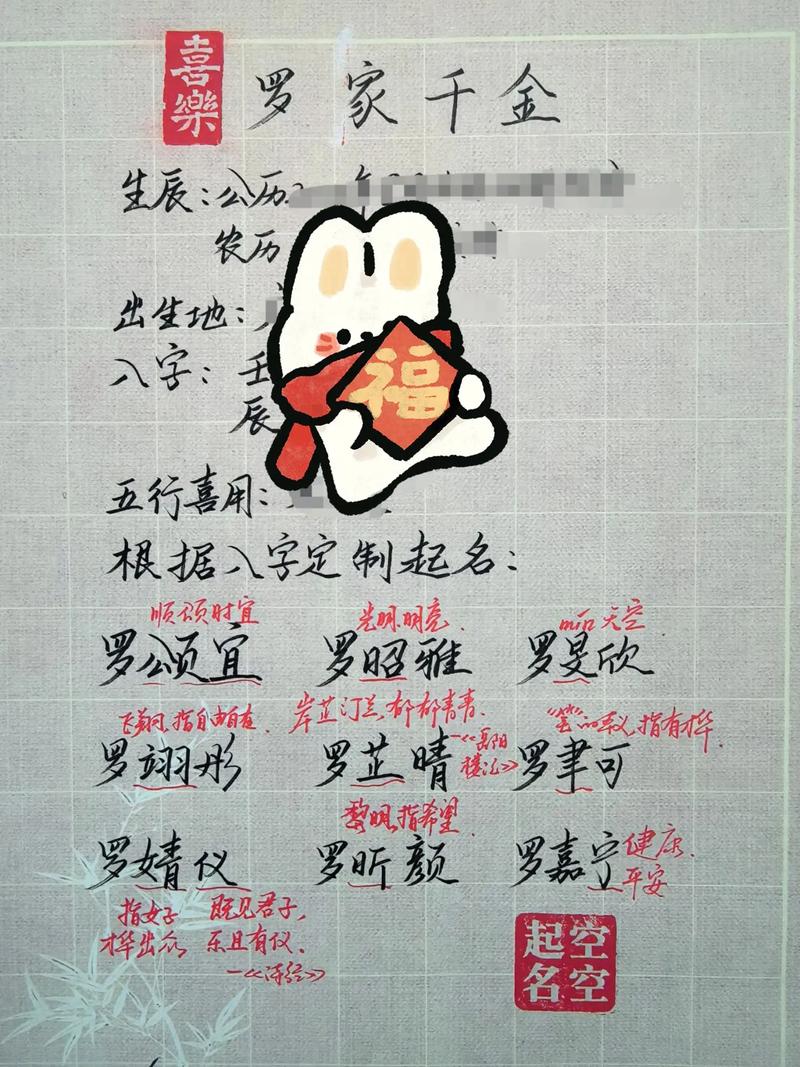 喜樂
罗家千金
生辰：公历
农历
出生地：
八字：壬
辰
福
五行喜用：
根据八字定制起名：
顺颂时宜 光明.明亮. 天空
罗颂宜 罗昭雅 罗旻欣
飞翔，指自由自在. 岸芷汀兰，郁郁青青. 指有才华.
—《岳阳楼记》
罗翊彤 罗芷晴 罗聿可
黎明，指希望.
罗婧仪 罗昕颜 罗嘉宁
健康.
平安
指女子 既见君子，
才华出众 乐且有仪.
—《诗经》
空空
起名